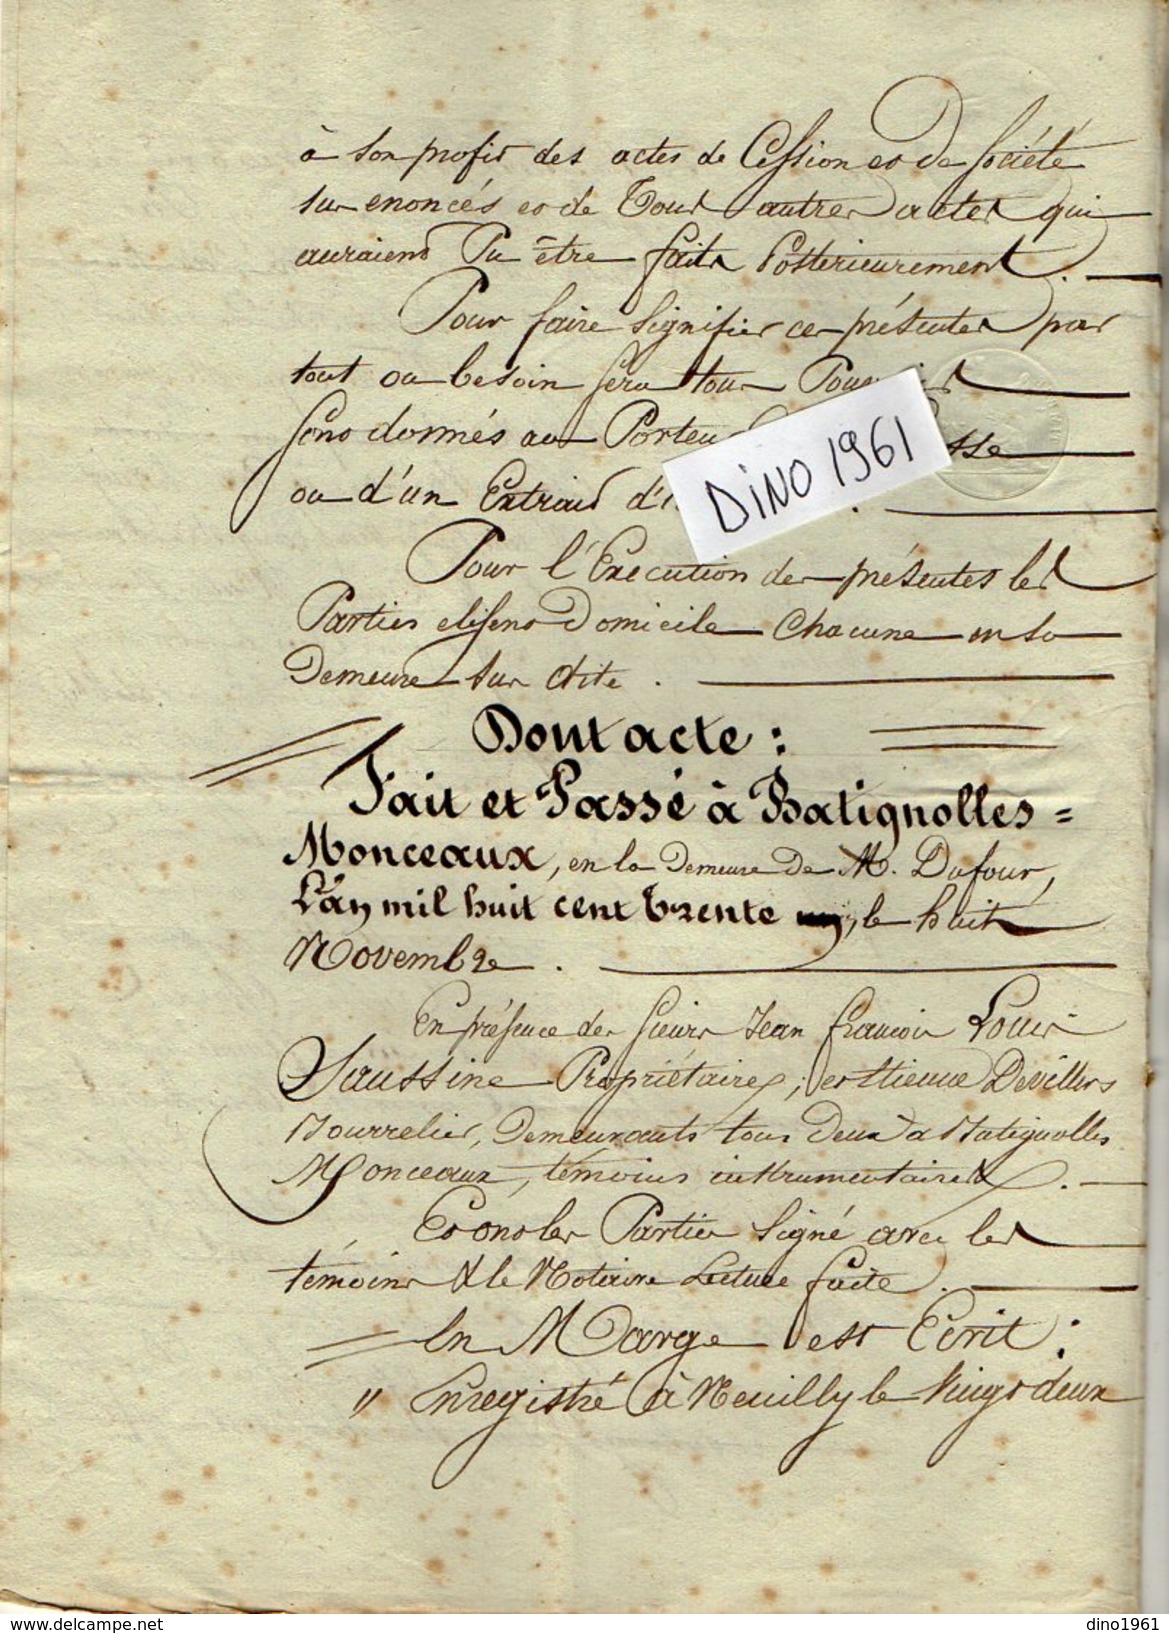 à son profit des actes de Cession et De Société
sur enoncés et de Tous autres actes qui
auraient Pu être faits Postérieurement.
Pour faire Signifier ces présentes par
tout ou besoin sera tous
sont donnés au
ou d'un Extrait
DiNO 1961
Pour l'Execution des présentes les
Parties elisent Domicile Chacune en sa
Demeure sur dite.
Dont acte :
Fait et Passé à Batignolles=
Monceaux, en la Demeure De M. Dufour,
L'an mil huit cent trente un, le huit
Novembre.
En présence des Sieurs Jean françois Louis
Saussine Propriétaire, et Etienne Devillers
Bourrelier, Demeurants tous Deux à Batignolles
Monceaux, témoins instrumentaires.
Et ont les Parties Signé avec les
témoins & le Notaire Lecture faite.
En Marge est Ecrit :
" Enregistré à Neuilly le Vingt deux
delcampe.net
dino1961